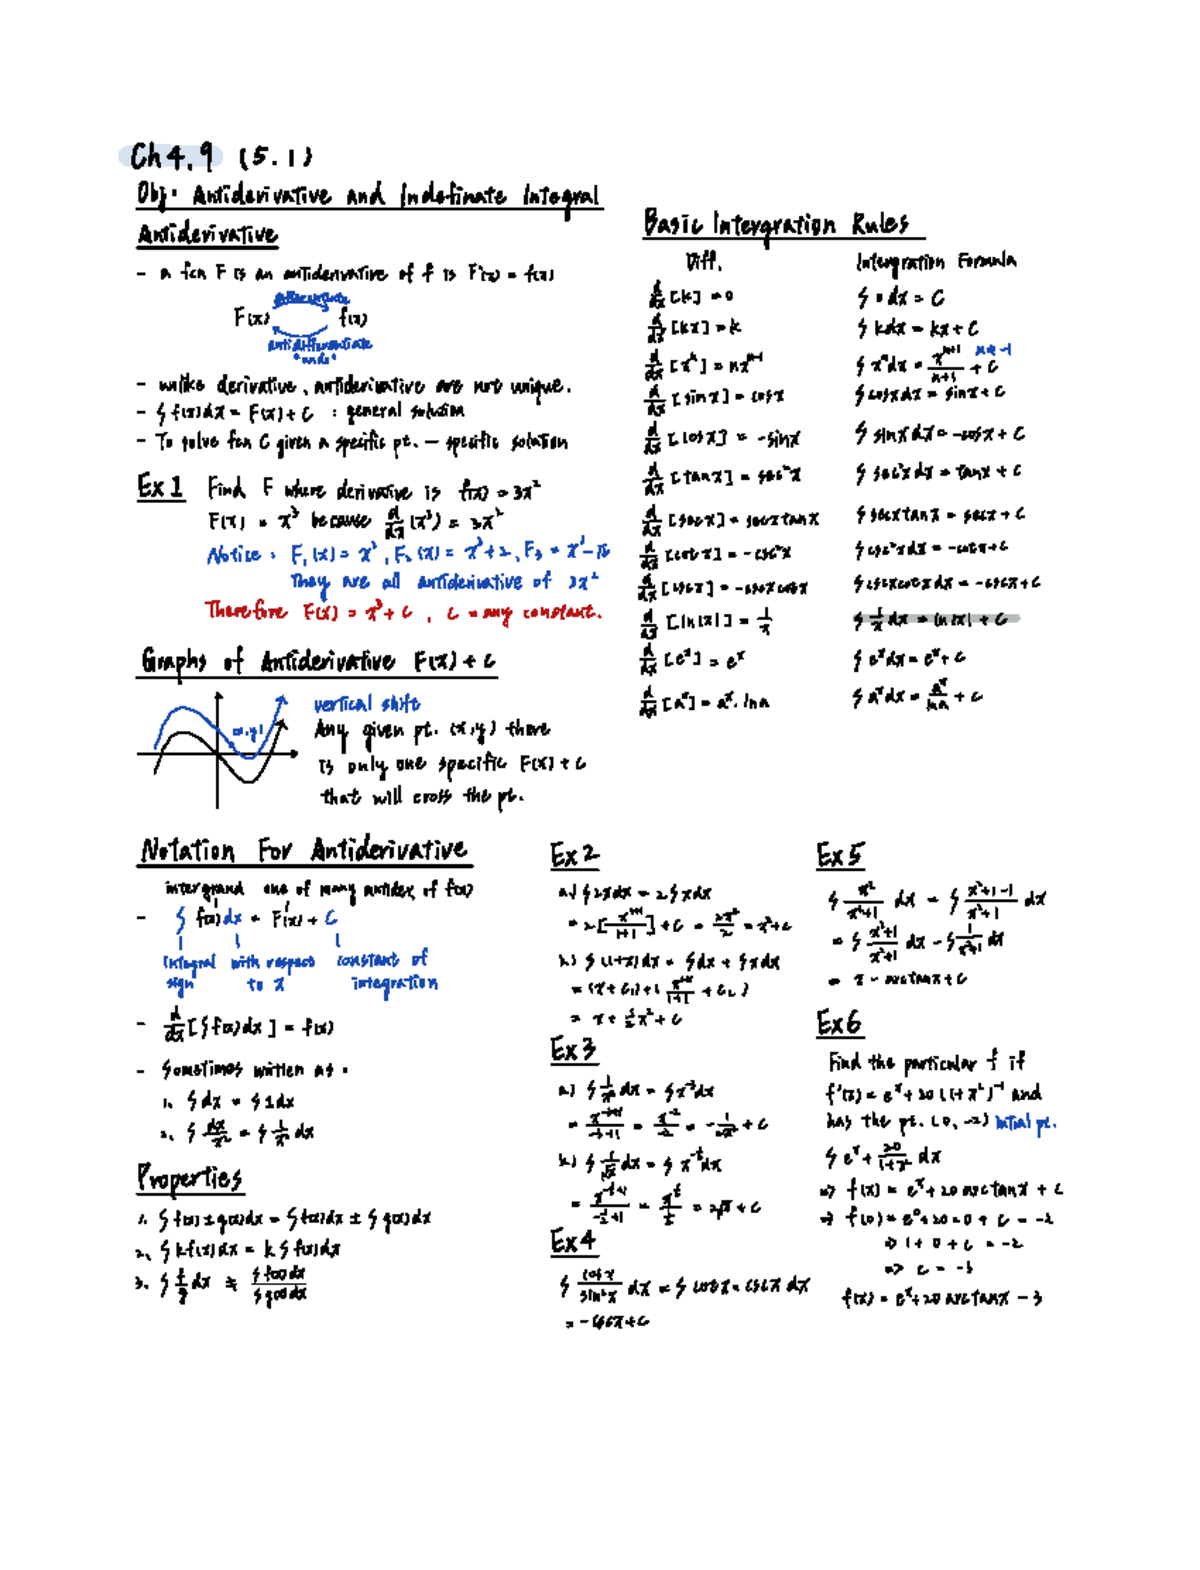 Ch 4.9 (5.1)
Obj: Antiderivative and Indefinate Integral
Antiderivative
- a fcn F is an antiderivative of f is F'(x) = f(x)
F(x) f(x)
antidifferentiate
- unlike derivative, antiderivative are not unique.
- ∫ f(x)dx = F(x) + C : general solution
- To solve fcn C given a specific pt. — specific solution
Ex 1 Find F where derivative is f(x) = 3x²
F(x) = x³ because d/dx (x³) = 3x²
Notice: F₁(x) = x³, F₂(x) = x³+2, F₃ = x³-π
They are all antiderivative of 3x²
Therefore F(x) = x³ + C, C = any constant.
Graphs of Antiderivative F(x) + C
(x,y)
vertical shift
Any given pt. (x,y) there
is only one specific F(x) + C
that will cross the pt.
Basic Intergration Rules
Diff. Intergration Formula
d/dx [k] = 0 ∫ 0 dx = C
d/dx [kx] = k ∫ kdx = kx + C
d/dx [xⁿ] = nxⁿ⁻¹ ∫ xⁿdx = xⁿ⁺¹/n+1 + C n≠-1
d/dx [sinx] = cosx ∫ cosxdx = sinx + C
d/dx [cosx] = -sinx ∫ sinxdx = -cosx + C
d/dx [tanx] = sec²x ∫ sec²xdx = tanx + C
d/dx [secx] = secxtanx ∫ secxtanx = secx + C
d/dx [cotx] = -csc²x ∫ csc²xdx = -cotx + C
d/dx [cscx] = -cscxcotx ∫ cscxcotxdx = -cscx + C
d/dx [ln|x|] = 1/x ∫ 1/x dx = ln|x| + C
d/dx [eˣ] = eˣ ∫ eˣdx = eˣ + C
d/dx [aˣ] = aˣ·lna ∫ aˣdx = aˣ/lna + C
Notation For Antiderivative
intergrand one of many antider. of f(x)
- ∫ f(x)dx = F(x) + C
integral with respect constant of
sign to x integration
- d/dx [∫ f(x)dx] = f(x)
- Sometimes written as:
1. ∫ dx = ∫ 1dx
2. ∫ dx/x² = ∫ 1/x² dx
Properties
1. ∫ f(x) ± g(x)dx = ∫ f(x)dx ± ∫ g(x)dx
2. ∫ kf(x)dx = k ∫ f(x)dx
3. ∫ f/g dx ≠ ∫ f(x)dx / ∫ g(x)dx
Ex 2
a.) ∫ 2xdx = 2 ∫ xdx
= 2[x¹⁺¹/1+1] + C = 2x²/2 = x² + C
b.) ∫ (1+x)dx = ∫ dx + ∫ xdx
= (x + C₁) + ( x¹⁺¹/1+1 + C₂ )
= x + ½x² + C
Ex 3
a.) ∫ 1/x³ dx = ∫ x⁻³dx
= x⁻³⁺¹/-3+1 = x⁻²/-2 = -1/2x² + C
b.) ∫ 1/√x dx = ∫ x^-½ dx
= x^-½+1/-½+1 = x^½/½ = 2√x + C
Ex 4
∫ cosx/sin²x dx = ∫ cotx · cscx dx
= -cscx + C
Ex 5
∫ x²/x²+1 dx = ∫ x²+1-1/x²+1 dx
= ∫ x²+1/x²+1 dx - ∫ 1/x²+1 dx
= x - arctanx + C
Ex 6
Find the particular f if
f'(x) = eˣ + 20(1+x²)⁻¹ and
has the pt. (0, -2) initial pt.
∫ eˣ + 20/1+x² dx
=> f(x) = eˣ + 20 arctanx + C
=> f(0) = e⁰ + 20·0 + C = -2
=> 1 + 0 + C = -2
=> C = -3
f(x) = eˣ + 20 arctanx - 3